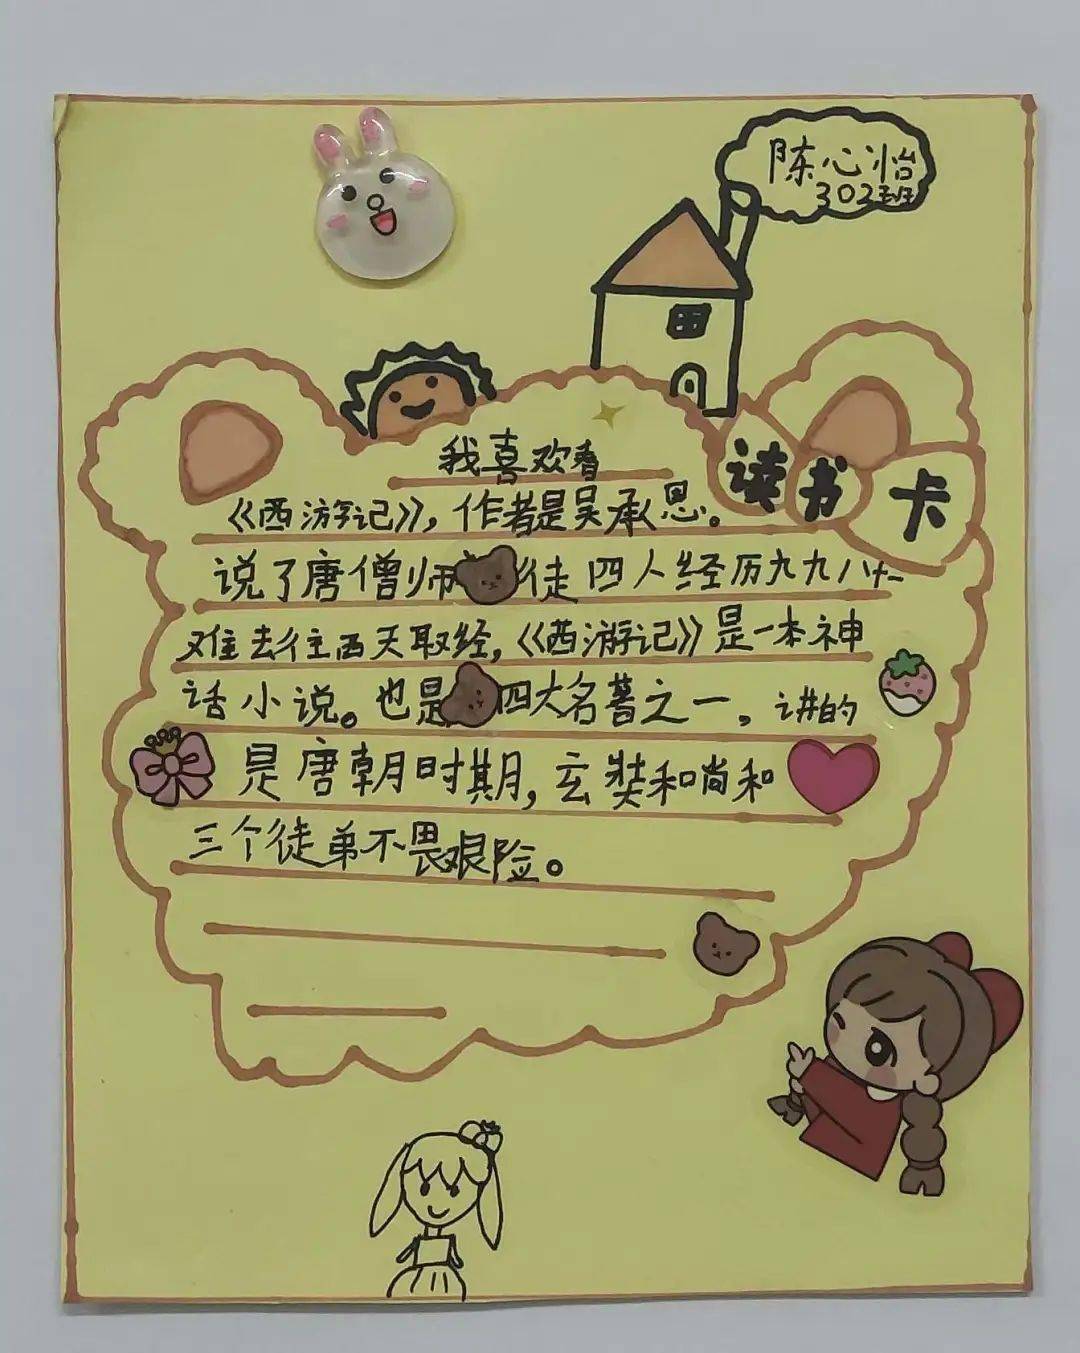 陈心怡
302班
读书卡
我喜欢看
《西游记》，作者是吴承恩。
说了唐僧师徒四人经历九九八十一
难去往西天取经，《西游记》是一本神
话小说。也是四大名著之一，讲的
是唐朝时期，玄奘和尚和
三个徒弟不畏艰险。